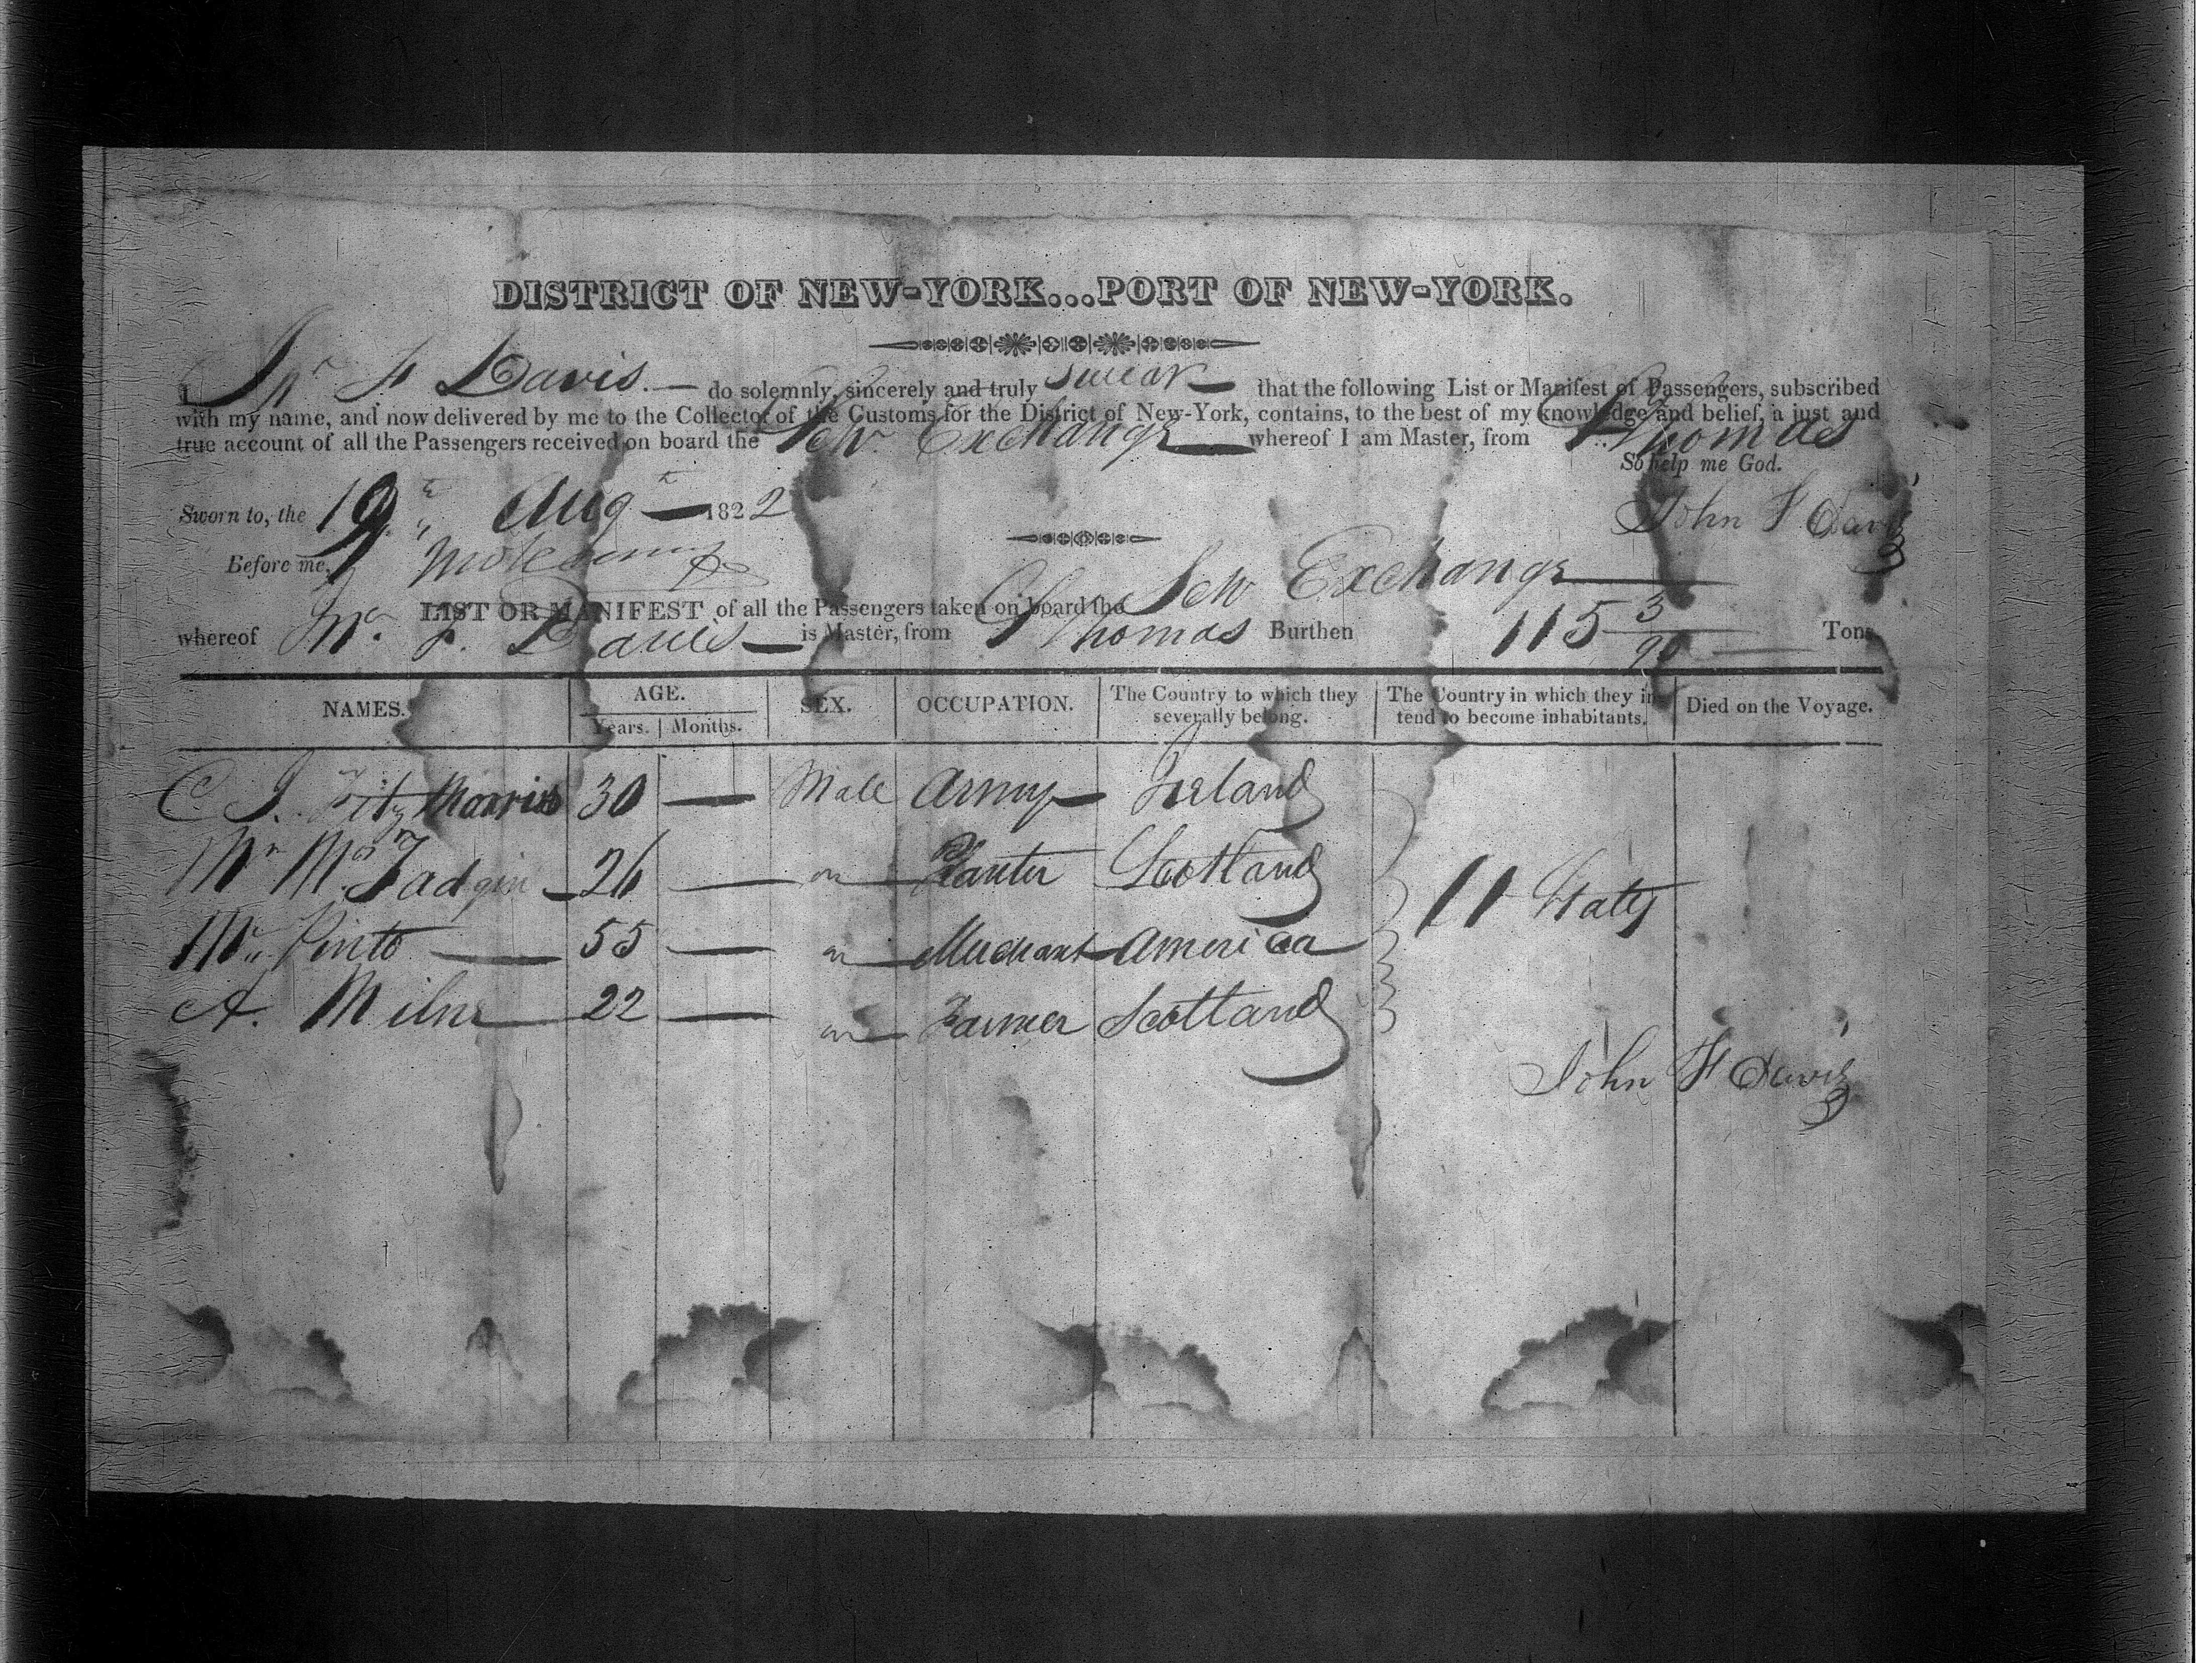 DISTRICT OF NEW-YORK...PORT OF NEW-YORK.
Jnr F Davis. — do solemnly, sincerely and truly swear — that the following List or Manifest of Passengers, subscribed
with my name, and now delivered by me to the Collector of the Customs for the District of New-York, contains, to the best of my knowledge and belief, a just and
true account of all the Passengers received on board the Schr Exchange — whereof I am Master, from St Thomas
So help me God.
Sworn to, the 19th Augt — 1822
John F Davis
Before me,
LIST OR MANIFEST of all the Passengers taken on board the Schr Exchange
whereof Jnr F. Davis — is Master, from St Thomas Burthen 115 3/95 Tons
NAMES. AGE. SEX. OCCUPATION. The Country to which they severally belong. The Country in which they in- tend to become inhabitants. Died on the Voyage.
Years. Months.
C J. Fitz Morris 30 — Male Army — Ireland
Mr McFadgin 26 — Planter Scotland
U States
Mr. Pinto — 55 — Merchant America
A. Milne 22 — Farmer Scotland
John F Davis